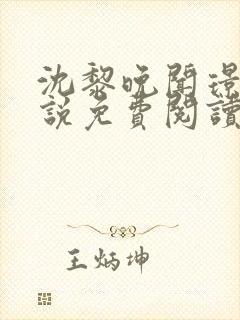 沈黎晚聞璟
說免費閱讀
王炳坤